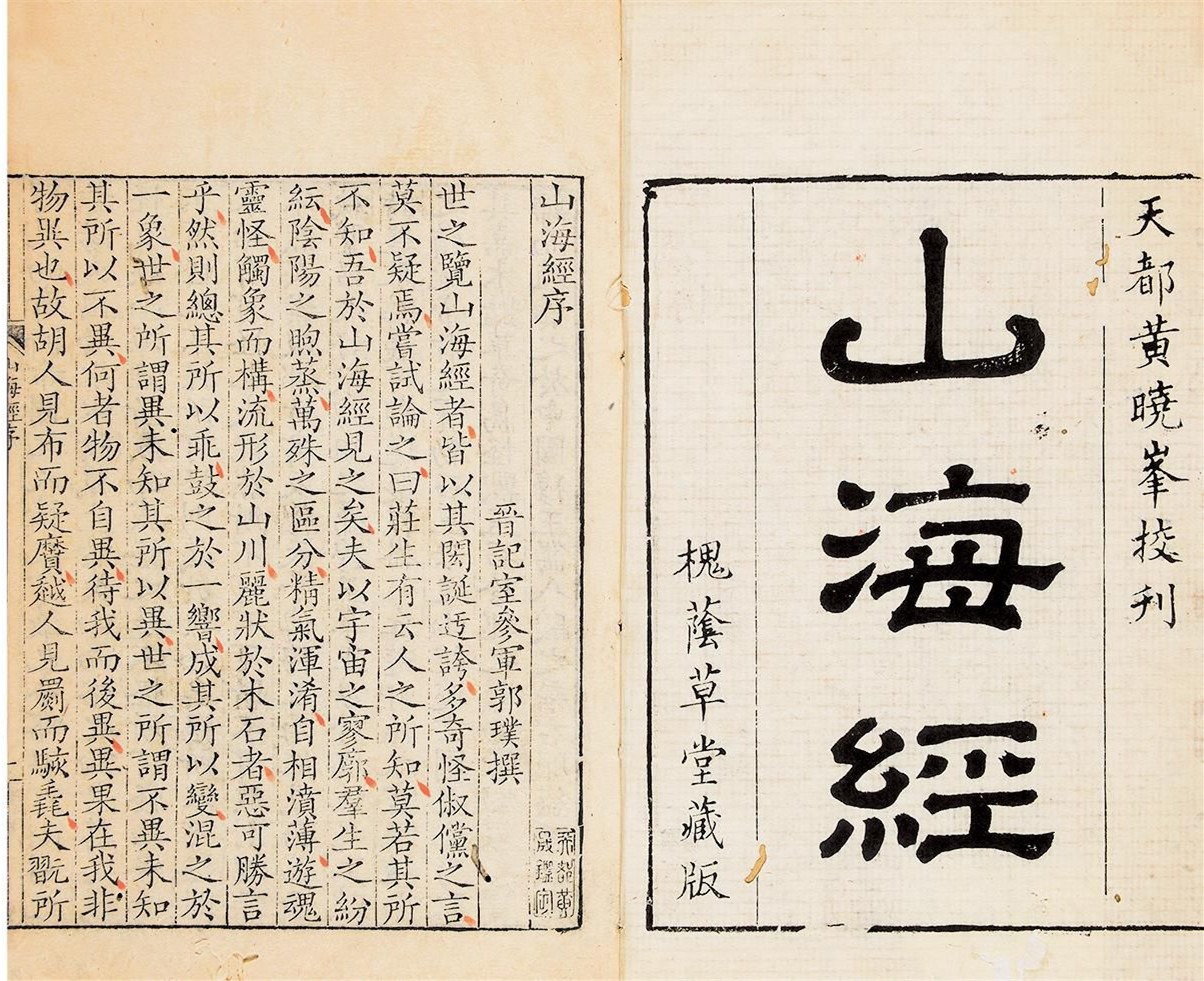 天都黄曉峯挍刋
山海經
槐蔭草堂藏版
山海經序
晉記室參軍郭璞撰
世之覽山海經者皆以其閎誕迃誇多奇怪俶儻之言
莫不疑焉嘗試論之曰莊生有云人之所知莫若其所
不知吾於山海經見之矣夫以宇宙之寥廓羣生之紛
紜陰陽之喣蒸萬殊之區分精氣渾淆自相濆薄遊魂
靈怪觸象而構流形於山川麗狀於木石者惡可勝言
乎然則總其所以乖鼓之於一響成其所以變混之於
一象世之所謂異未知其所以異世之所謂不異未知
其所以不異何者物不自異待我而後異異果在我非
物異也故胡人見布而疑黂越人見罽而駭毳夫翫所
山海經序
一